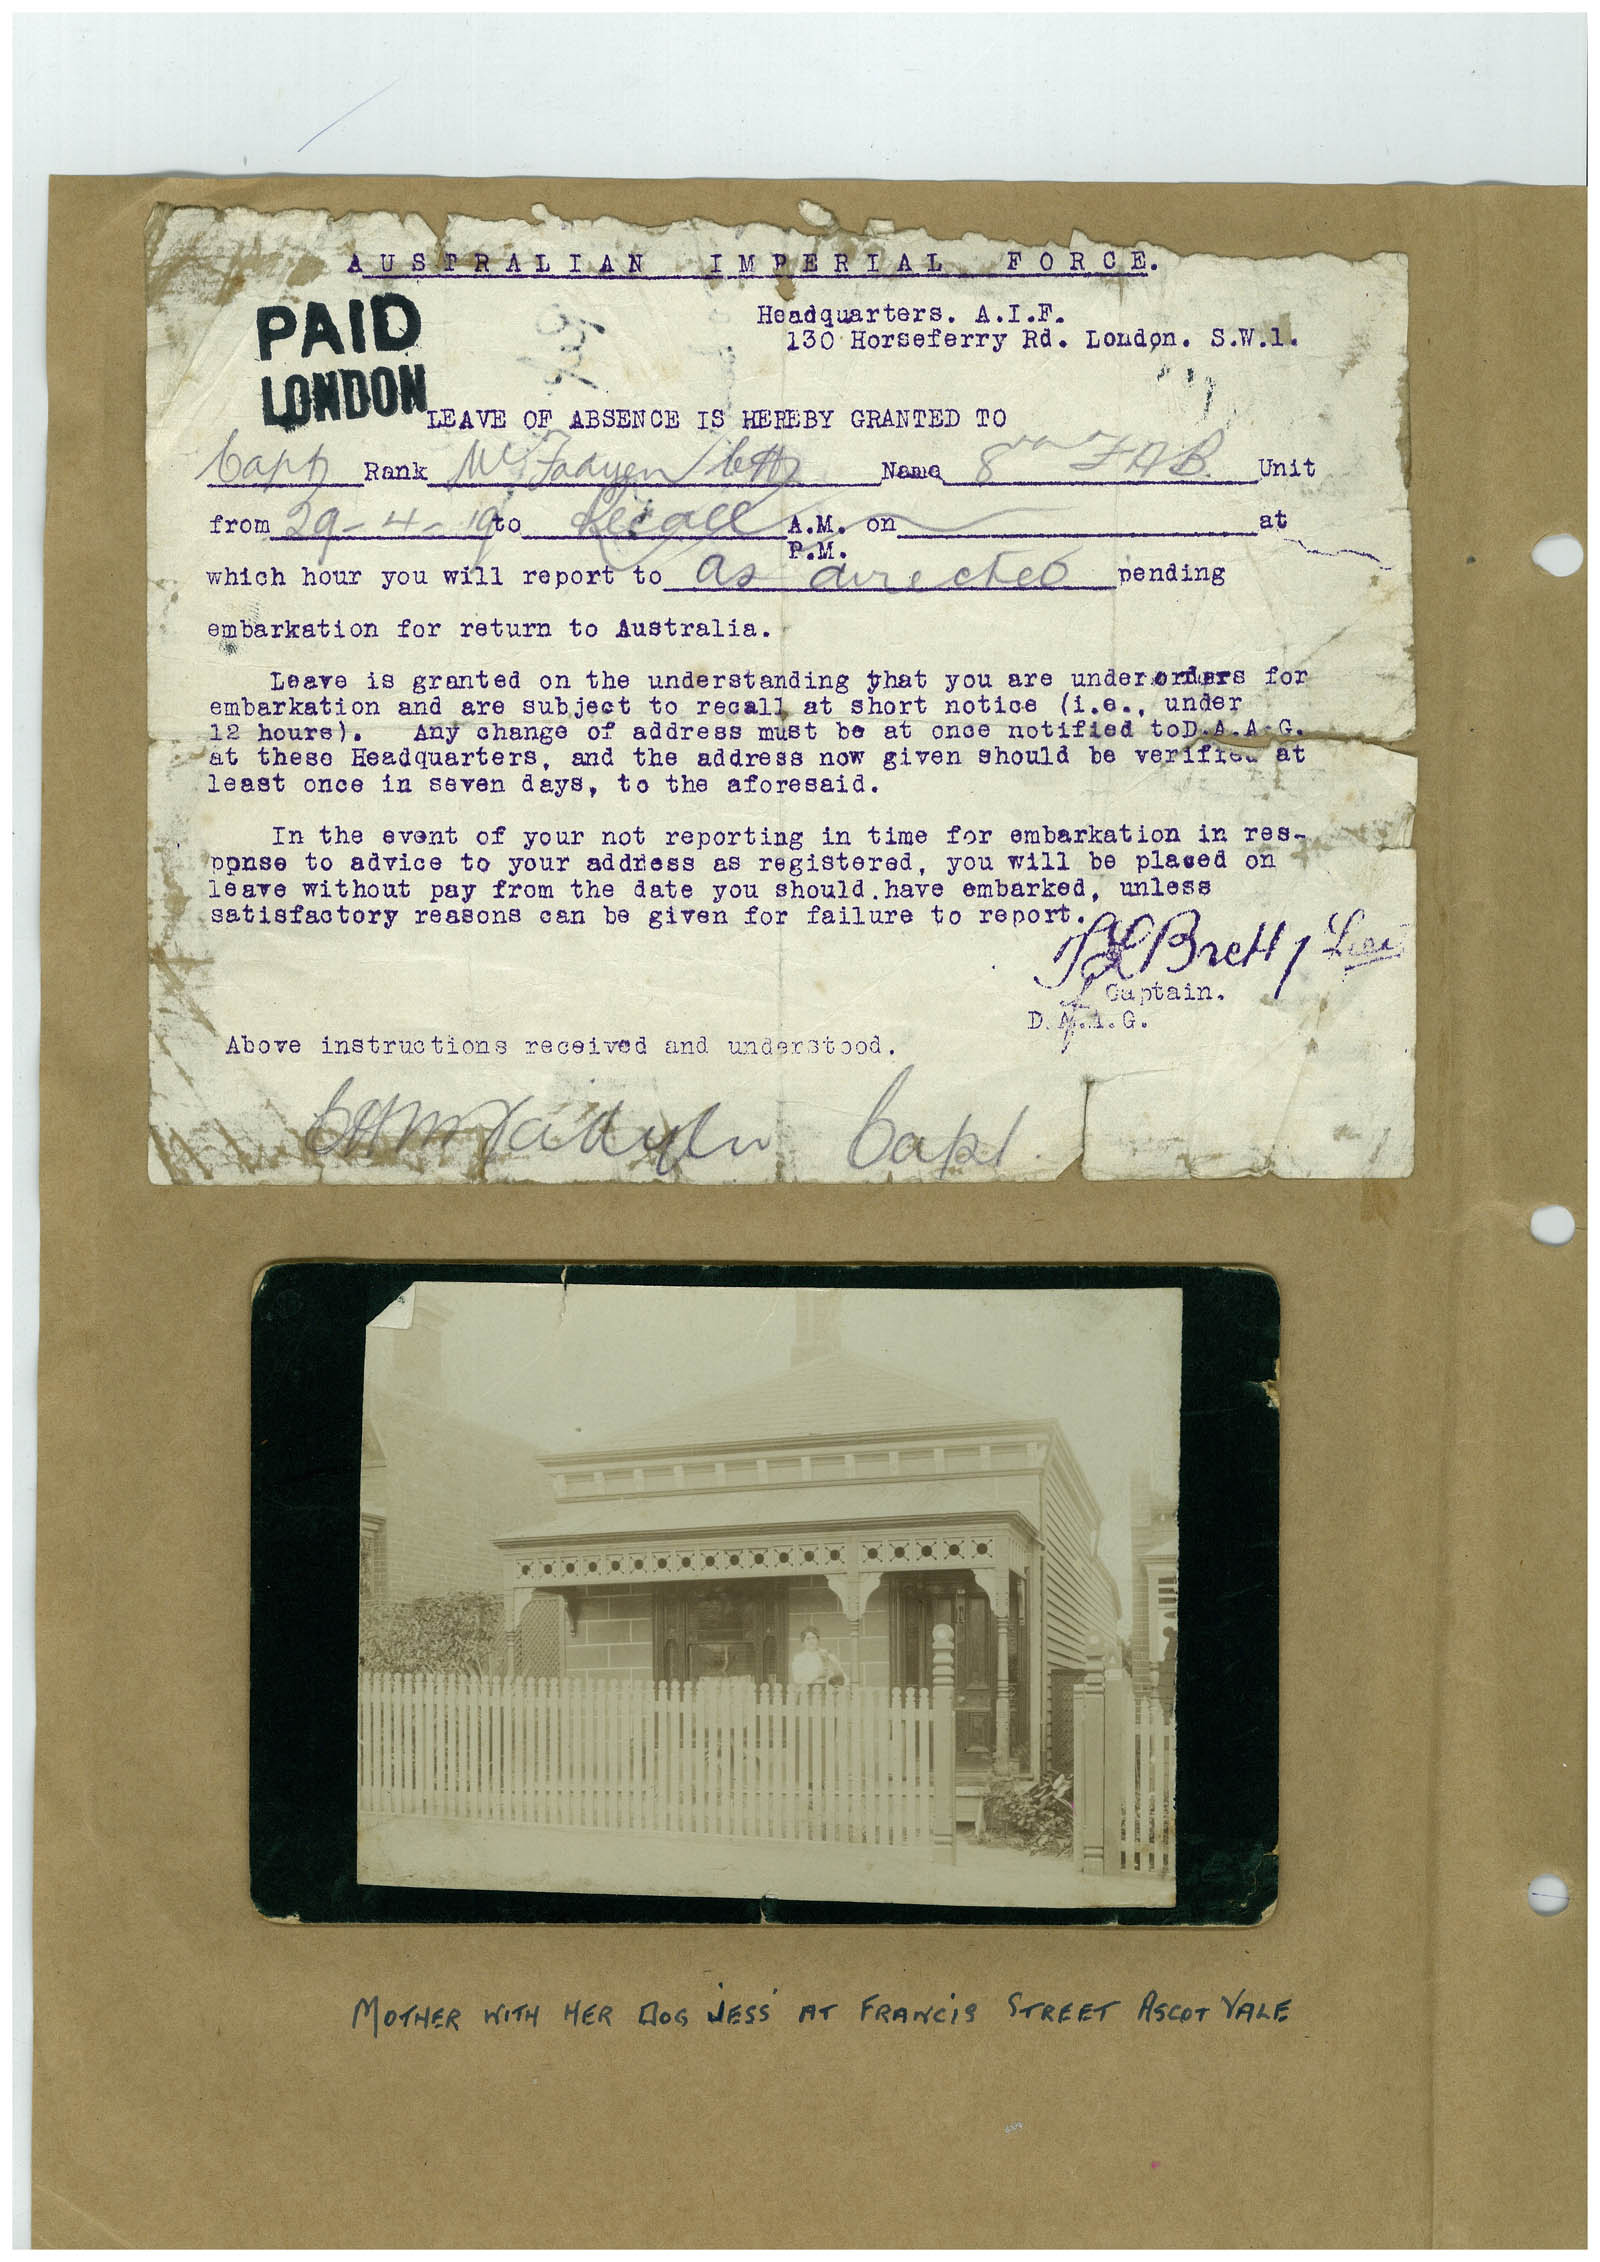 AUSTRALIAN IMPERIAL FORCE.
PAID
LONDON
Headquarters. A.I.F.
130 Horseferry Rd. London. S.W.1.
LEAVE OF ABSENCE IS HEREBY GRANTED TO
Capt Rank McFadyen Name 8th FAB. Unit
from 29-4-19 to Recall A.M. on at
P.M.
which hour you will report to as directed pending
embarkation for return to Australia.
Leave is granted on the understanding that you are under orders for
embarkation and are subject to recall at short notice (i.e., under
12 hours). Any change of address must be at once notified toD.A.A.G.
at these Headquarters, and the address now given should be verified at
least once in seven days, to the aforesaid.
In the event of your not reporting in time for embarkation in res-
ponse to advice to your address as registered, you will be placed on
leave without pay from the date you should.have embarked, unless
satisfactory reasons can be given for failure to report.
Brett, Lieut
Captain.
D.A.A.G.
Above instructions received and understood.
CHMcFadyen Capt
MOTHER WITH HER DOG 'JESS' AT FRANCIS STREET ASCOT VALE